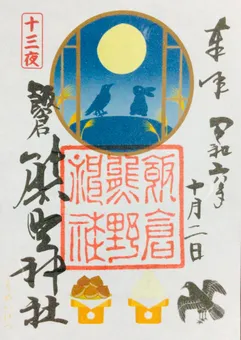 奉拝
令和六年
十月二日
十三夜
飯倉
熊野神社
飯倉
熊野
神社